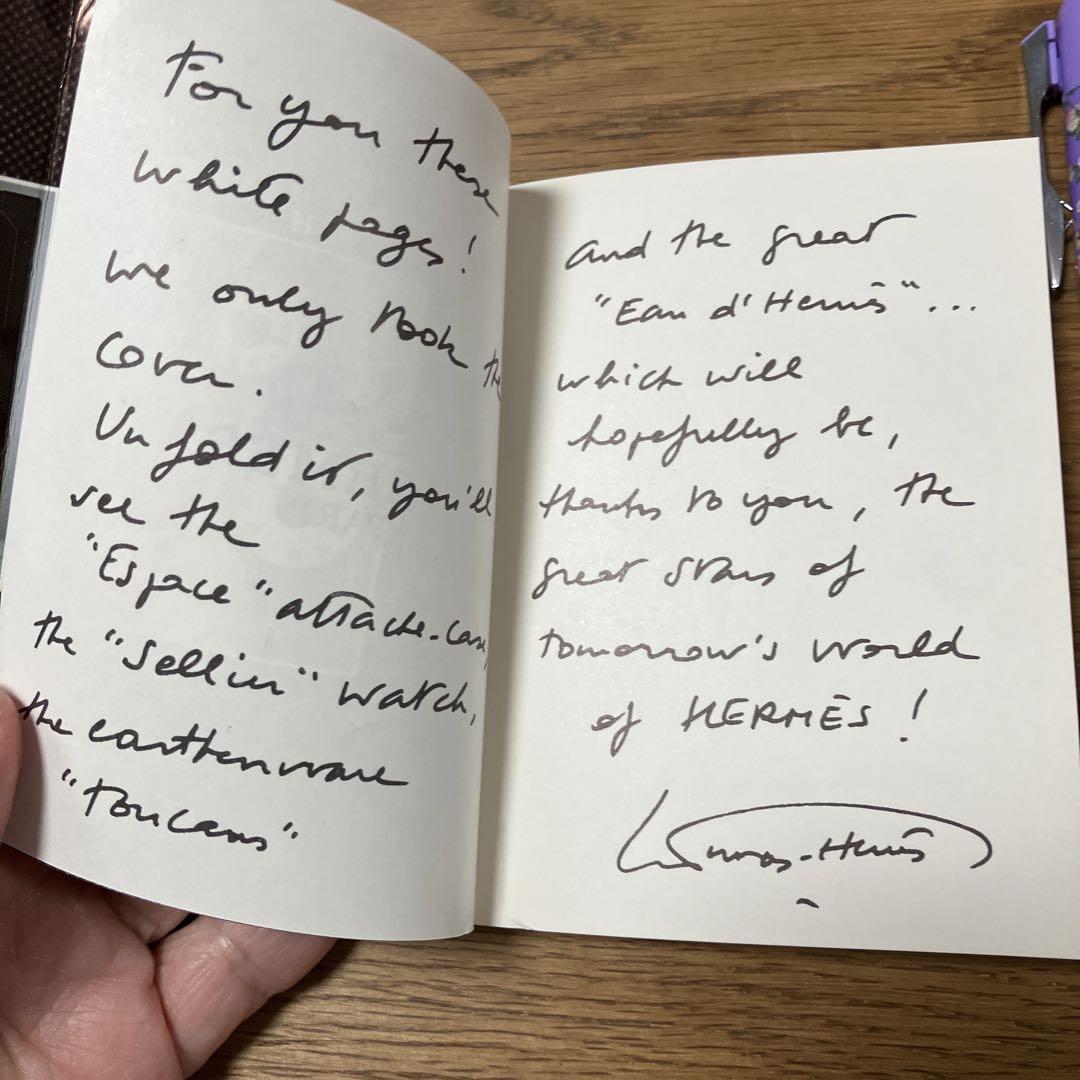 For you these
white pages!
we only took the
cover.
Unfold it, you'll
see the
"Espace" attache-case,
the "Sellier" watch,
the earthenware
"Toucans"
and the great
"Eau d'Hermès"...
which will
hopefully be,
thanks to you, the
great stars of
tomorrow's world
of HERMÈS!
Dumas-Hermès